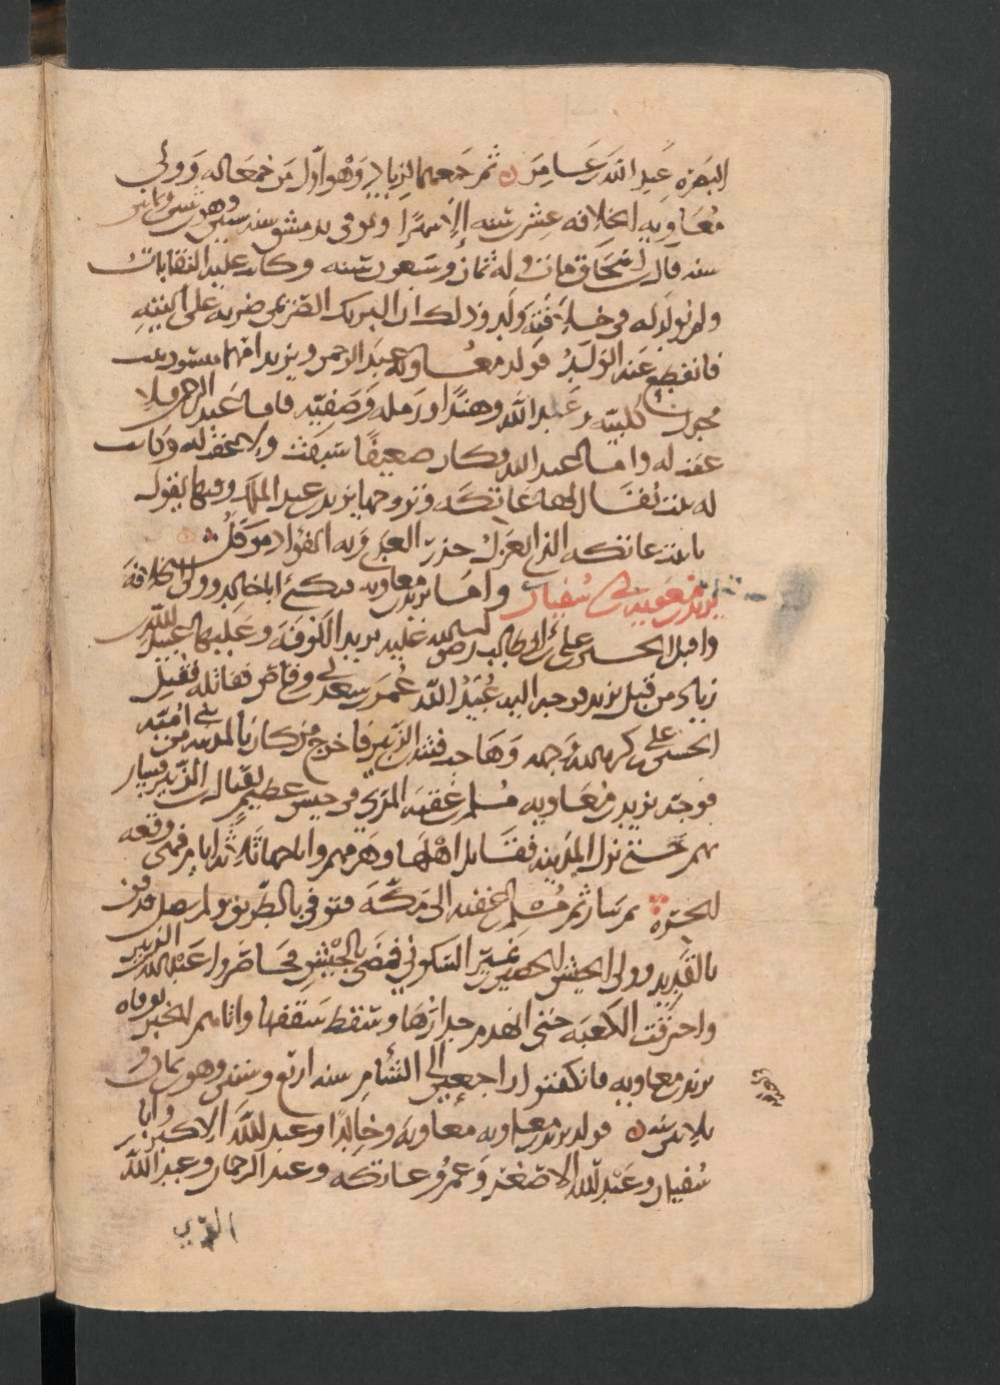 البصرة عبد الله بن عامر ثم جمعهما لزياد وهو اول من جمعا له وولي
معاوية الخلافة عشرين سنه الا شهرا وتوفي بدمشق سنه ستين وهو ابن اثنين وثمانين
سنه قال ابن اسحاق مات وله ثمان وسبعون سنه وكانت عليه النقابات
ولم يولد له في خلافته ولد وذلك ان البرك الصريمي ضربه على اليتيه
فانقطع عنه الولد فولد معاوية عبد الرحمن ويزيد امهما ميسون بنت
بحدل كلبيه وعبد الله وهندا ورمله وصفيه فاما عبد الرحمن فلا
عقب له واما عبد الله فكان ضعيفا ولا عقب له وكانت
له بنت يقال لها عاتكه وتزوجها يزيد بن عبد الملك وفيها يقول
يا بيت عاتكه الذي اتعزل حذر العدى وبه الفؤاد موكل
يزيد بن معويه بن ابي سفيان واما يزيد بن معاويه فيكنى ابا خالد وولي الخلافة
واقبل الحسين بن علي بن ابي طالب رضى الله عليه يريد الكوفة وعليها عبيد الله بن
زياد من قبل يزيد فوجه اليه عبيد الله عمر بن سعد بن ابي وقاص فقاتله فقتل
الحسين بن علي كرم الله وجهه وهاجت فتنة ابن الزبير فاخرج من كان بالمدينه من بني اميه
فوجه يزيد بن معاويه مسلم بن عقبه المري في جيش عظيم لقتال ابن الزبير فسار
بهم حتى نزل المدينه فقاتل اهلها وهزمهم واباحها ثلاثه ايام فهي وقعه
الحرة ثم سار مسلم بن عقبه الى مكة فتوفي بالطريق ولم يصل فدفن
بالقديد وولى الجيش الحصين بن نمير السكوني فمضى بالجيش فحاصروا عبد الله بن الزبير
واحرقت الكعبه حتى انهدم جدارها وسقط سقفها واتاهم الخبر بوفاه
يزيد بن معاويه فانكفئوا راجعين الى الشام سنه اربع وستين وهو ابن ثمان و
ثلاثين سنه فولد يزيد بن معاويه معاوية وخالدا وعبد الله الاكبر وابا
سفيان وعبد الله الاصغر وعمر وعاتكه وعبد الرحمن وعبد الله
الذي